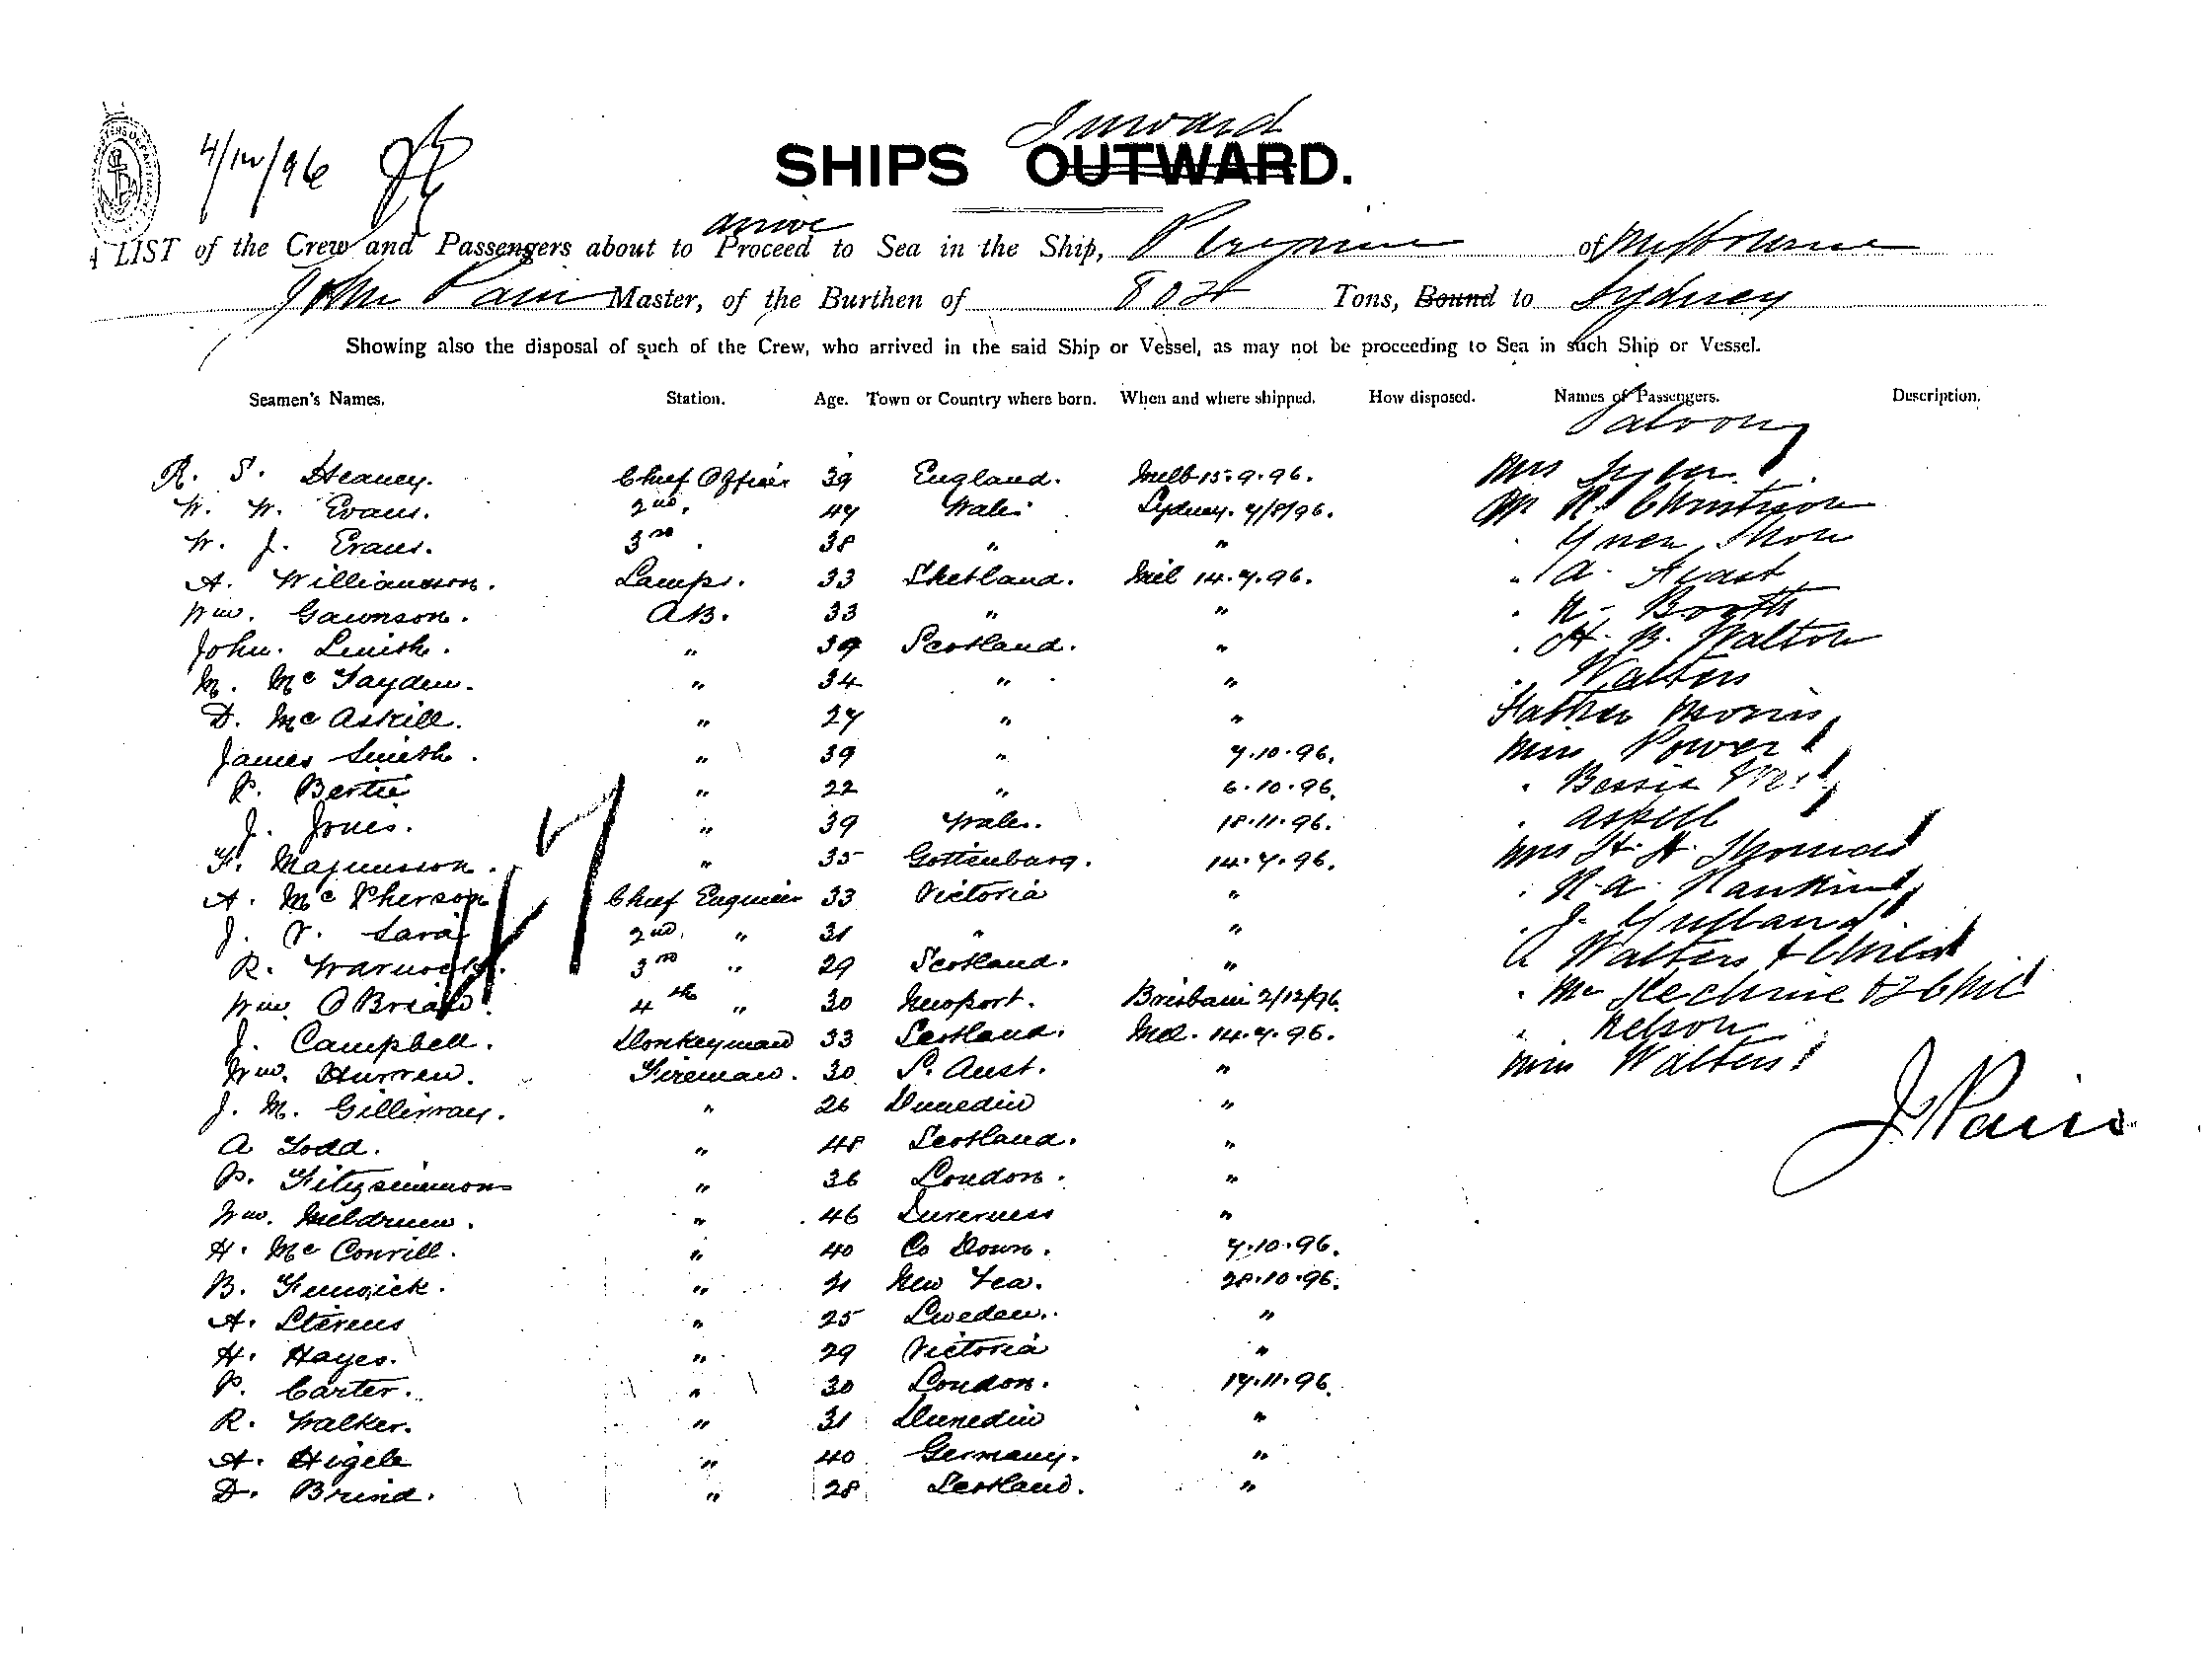 4/12/96
Inward
SHIPS OUTWARD.
arrive
A LIST of the Crew and Passengers about to Proceed to Sea in the Ship, Peregrine of Melbourne
John Pain Master, of the Burthen of Tons, Bound to Sydney
Showing also the disposal of such of the Crew, who arrived in the said Ship or Vessel, as may not be proceeding to Sea in such Ship or Vessel.
Seamen's Names. Station. Age. Town or Country where born. When and where shipped. How disposed. Names of Passengers. Description.
Saloon
R. S. Heaney. Chief Officer 39 England. Melb 15.9.96. Mrs
W. W. Evans. 2nd. 47 Wales Sydney. 7/8/96. Mr R. Christison
W. J. Evans. 3rd. 38 " "
A. Williamson. Lamps. 33 Shetland. Mel 14.7.96. " A.
Wm. Gawnson. AB. 33 " " " Booth
John. Smith. " 39 Scotland. " " H. B. Walton
M. Mc Fayden. " 34 " " " Walters
D. Mc Askill. " 27 " " Father Morris
James Smith. " 39 " 7.10.96. Miss Power
P. Bertie " 22 " 6.10.96. " Bessie
J. Jones. " 39 Wales. 18.11.96. " Askill
F. Magnusson. " 35 Gottenburg. 14.7.96. Mrs H. A. Thomas
A. Mc Pherson Chief Engineer 33 Victoria " " R. A. Rankin
J. V. Sara 2nd. " 31 " " " J.
R. Warnock. 3rd " 29 Scotland. " A Walters & Child
Wm. O Brian. 4th " 30 Newport. Brisbane 2/12/96. " Mc Kechnie & 2 Chil
J. Campbell. Donkeyman 33 Scotland. Mel. 14.7.96. " Nelson
Wm. Hurren. Fireman. 30 S. Aust. " Miss Walters
J. M. Gillivray. " 26 Dunedin "
J. Pain
A Todd. " 48 Scotland. "
P. Fitzsimmons " 36 London. "
Wm. Meldrum. " 46 Inverness "
H. Mc Convill. " 40 Co Down. 7.10.96.
B. Fenwick. " 21 New Zea. 28.10.96.
A. Stevens " 25 Sweden. "
H. Hayes. " 29 Victoria "
P. Carter. " 30 London. 17.11.96.
R. Walker. " 31 Dunedin "
A. Higele " 40 Germany. "
D. Brind. " 28 Scotland. "